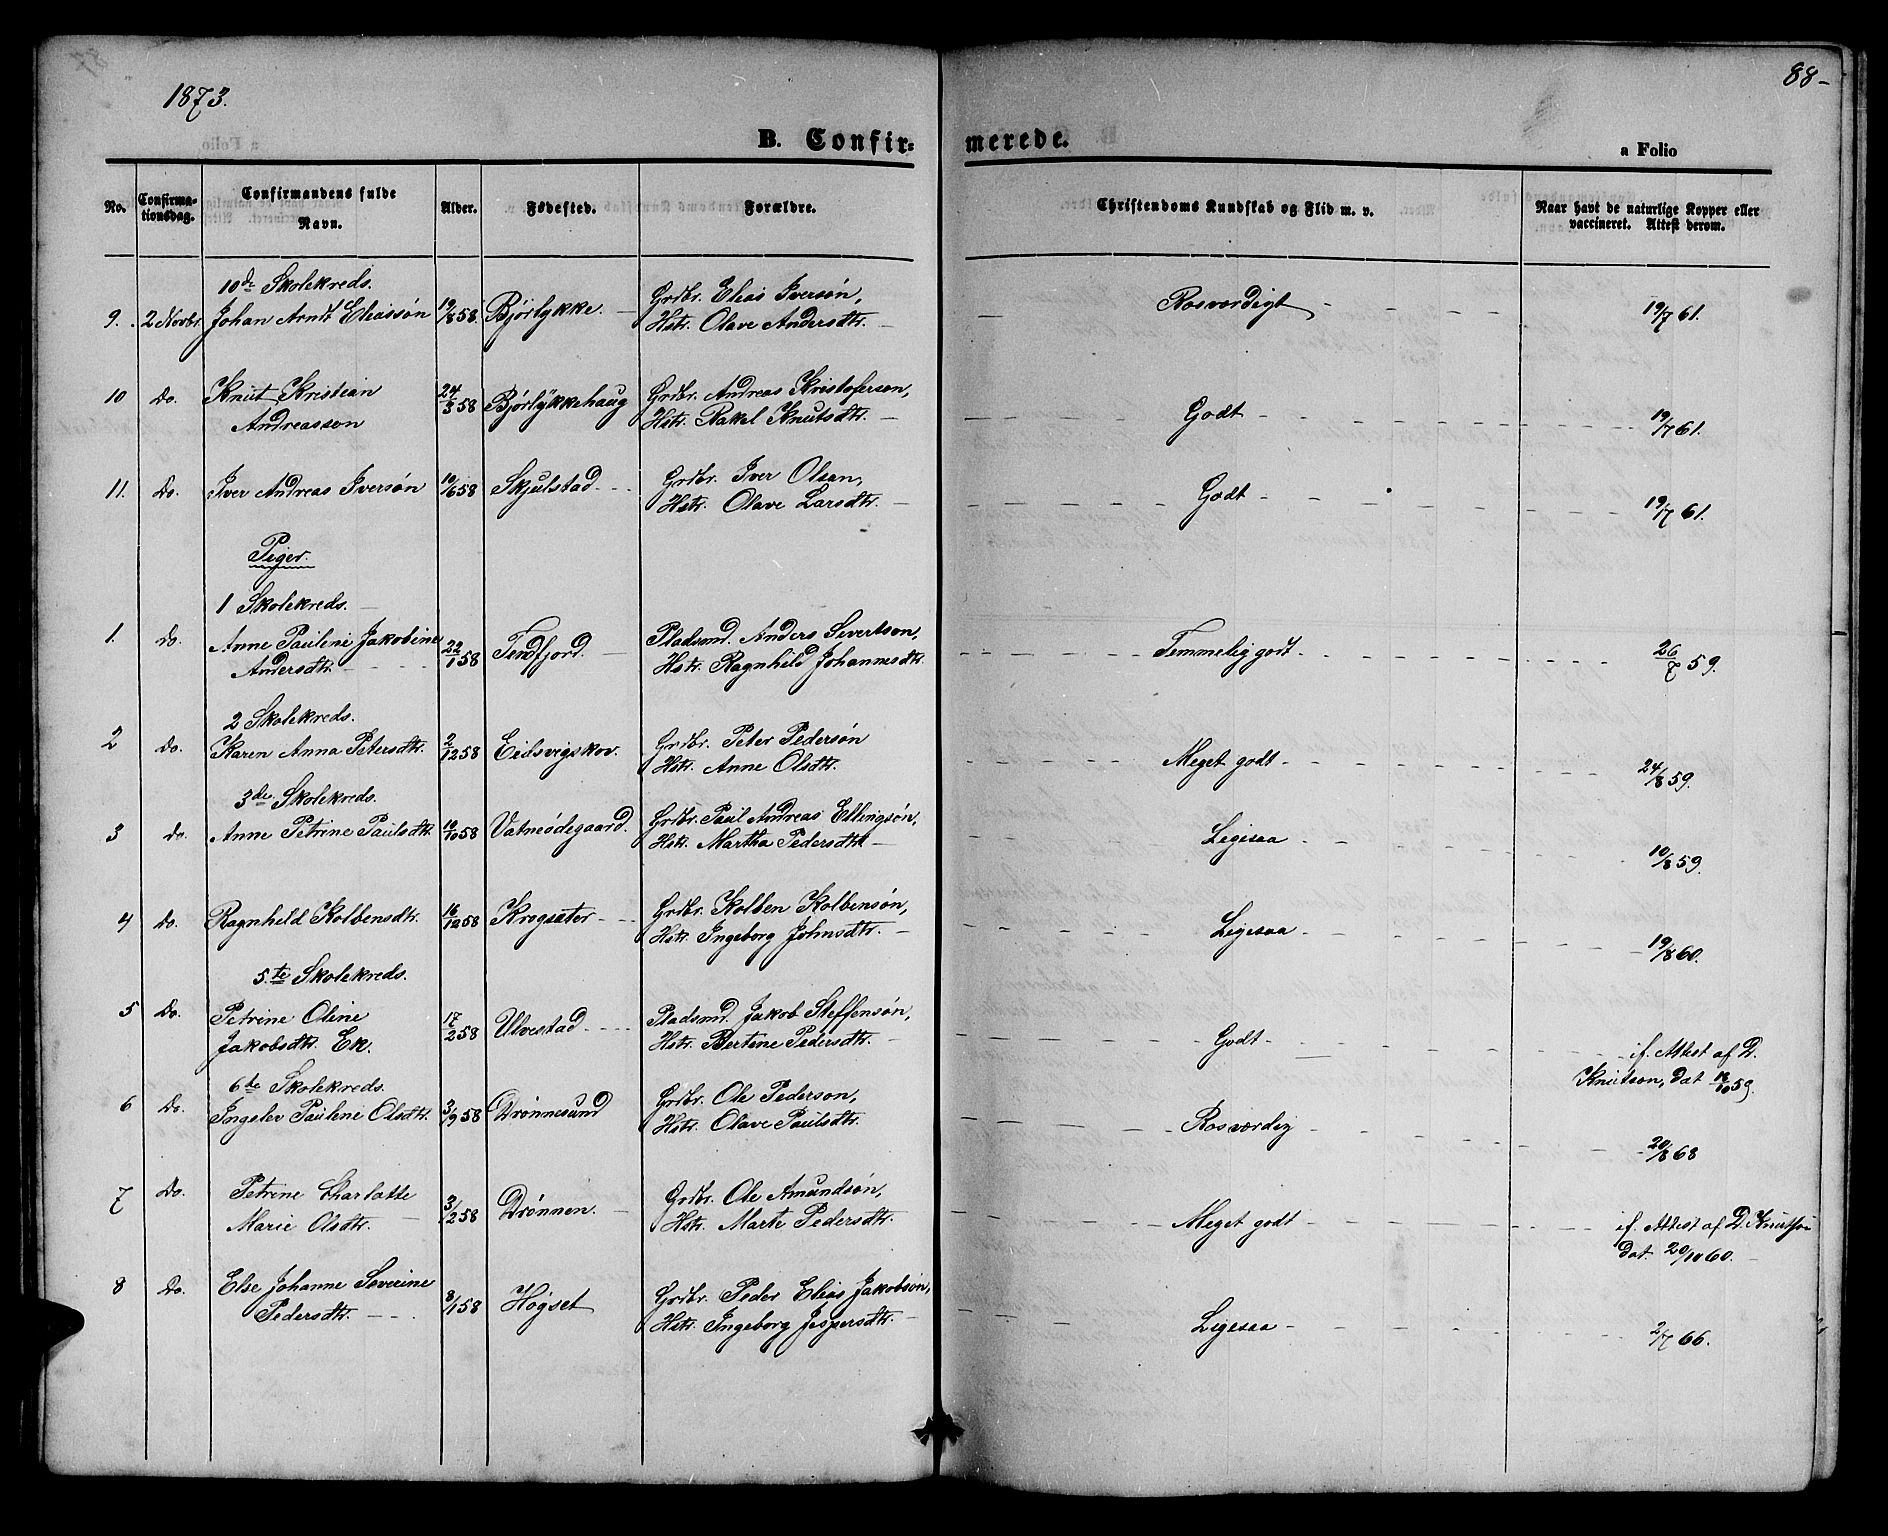 1873.
88-
B. Confir=
merede.
a Folio
No.
Confirma-
tionsdag.
Confirmandens fulde
Navn.
Alder.
Fødested.
Forældre.
Christendoms Kundskab og Flid m. v.
Naar havt de naturlige Kopper eller
vaccineret. Attest derom.
10de Skolekreds.
9. 2 Novbr. Johan Arndt Eliassøn 19/8 58. Bjørlykke. Grdbr. Elias Iversøn, Rosværdigt 19/7 61.
Hstr. Olave Andersdtr.
10 Do. Knut Kristian 24/3 58 Bjørlykkehaug Grdbr. Andreas Kristoferson, Godt 19/7 61.
Andreasson Hstr. Rakel Knutsdtr.
11. Do. Iver Andreas Iversøn 10/6 58 Skjulstad Grdbr. Iver Olsen, Godt 19/7 61.
Hstr. Olave Larsdtr.
Piger.
1 Skolekreds.
1. Do. Anne Pauline Jakobine 22/1 58 Tendfjord. Pladsmd. Anders Sivertson, Temmelig godt. 26/7 59.
Andersdtr. Hstr. Ragnheld Johannesdtr.
2 Skolekreds.
2 Do. Karen Anna Petersdtr. 2/12 58 Eidsvigskov. Grdbr. Peter Pedersøn Meget godt 24/8 59.
Hstr. Anne Olsdtr.
3de Skolekreds.
3 Do. Anne Petrine Paulsdtr. 10/10 58 Vatneødegaard. Grdbr. Paul Andreas Ellingsøn, Ligesaa 10/8 59.
Hstr. Martha Pedersdtr.
4 Do. Ragnheld Kolbensdtr. 16/12 58 Krogsæter Grdbr. Kolben Kolbensøn, Ligesaa 19/8 60.
Hstr. Ingeborg Johnsdtr.
5.te Skolekreds.
5 Do. Petrine Oline 17/2 58 Ulvestad Pladsmd. Jakob Steffensøn, Godt if. Attest af D.
Jakobsdtr. Ek. Hstr. Bertine Pedersdtr. Knutson, dat 18/10 59.
6te Skolekreds.
6 Do. Ingelev Pauline Olsdtr. 3/9 58 Drønnesund Grdbr. Ole Pederson, Rosværdig 20/8 68
Hstr. Olave Paulsdtr.
7 Do. Petrine Charlotte 3/2 58 Drønnen. Grdbr. Ole Amundsøn, Meget godt if. Attest af D. Knutson
Marie Olsdtr. Hstr. Marte Pedersdtr. dat 20/10 60.
8 Do. Else Johanne Severine 8/1 58 Høgset Grdbr. Peder Elias Jakobsøn, Ligesaa 2/7 66.
Pedersdtr. Hstr. Ingeborg Jespersdtr.